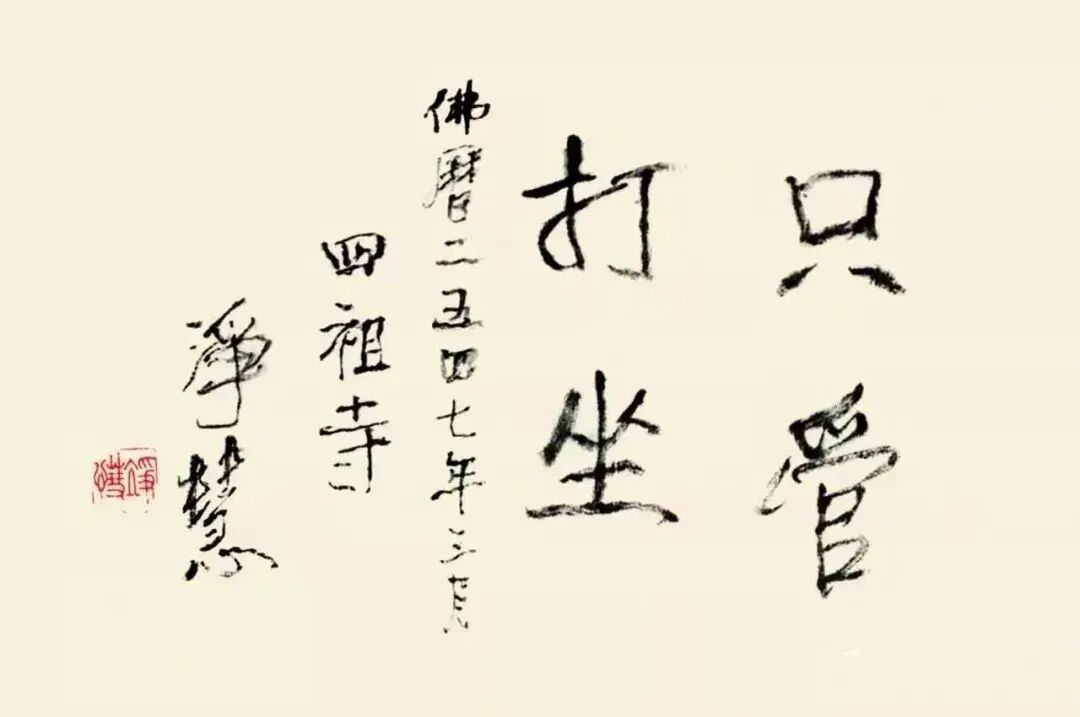 只管
打坐
佛曆二五四七年三月
四祖寺
淨慧
淨慧